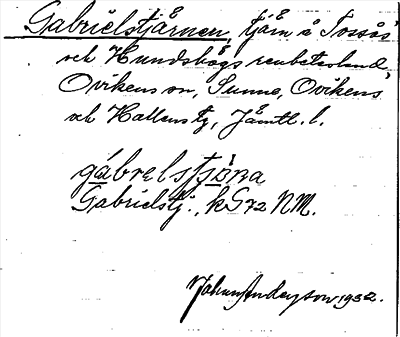 Gabrielstjärnen, tjärn å Tossås
och Hundshögs renbetesland,
Ovikens sn, Sunne, Ovikens
och Hallens tg, Jämtl. l.
gábrelstjɔ̈na
Gabrielstj., k G 72 NM.
Johan Anderson 1932.